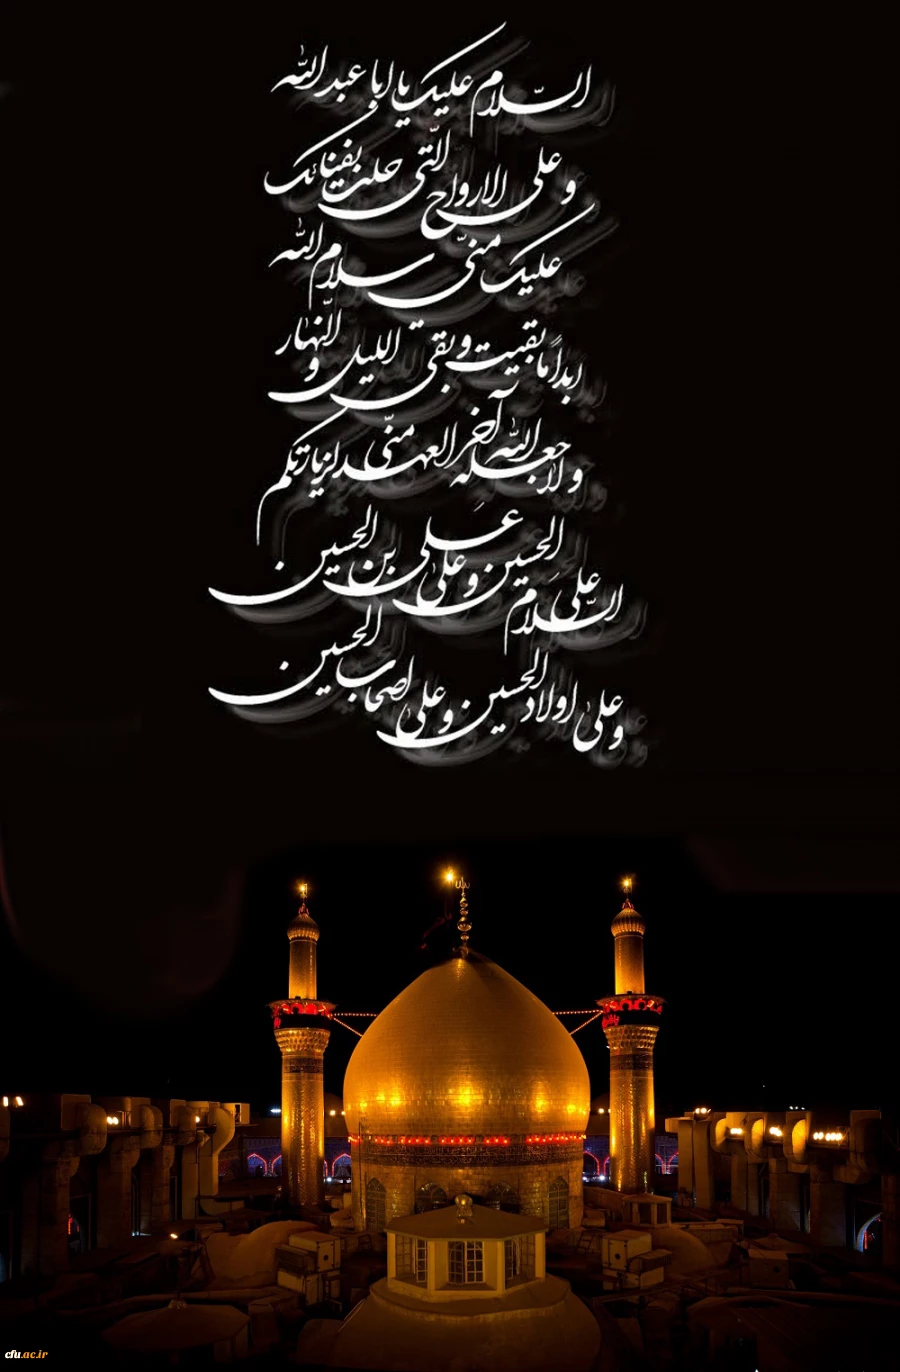 السّلام علیک یا ابا عبدالله
و علی الارواح الّتی حلت بفنائک
علیک منّی سلام الله
ابداً ما بقیت و بقی اللیل و النّهار
و لا جعله الله آخر العهد منّی لزیارتکم
السّلام علی الحسین و علی علی بن الحسین
و علی اولاد الحسین و علی اصحاب الحسین
cfu.ac.ir